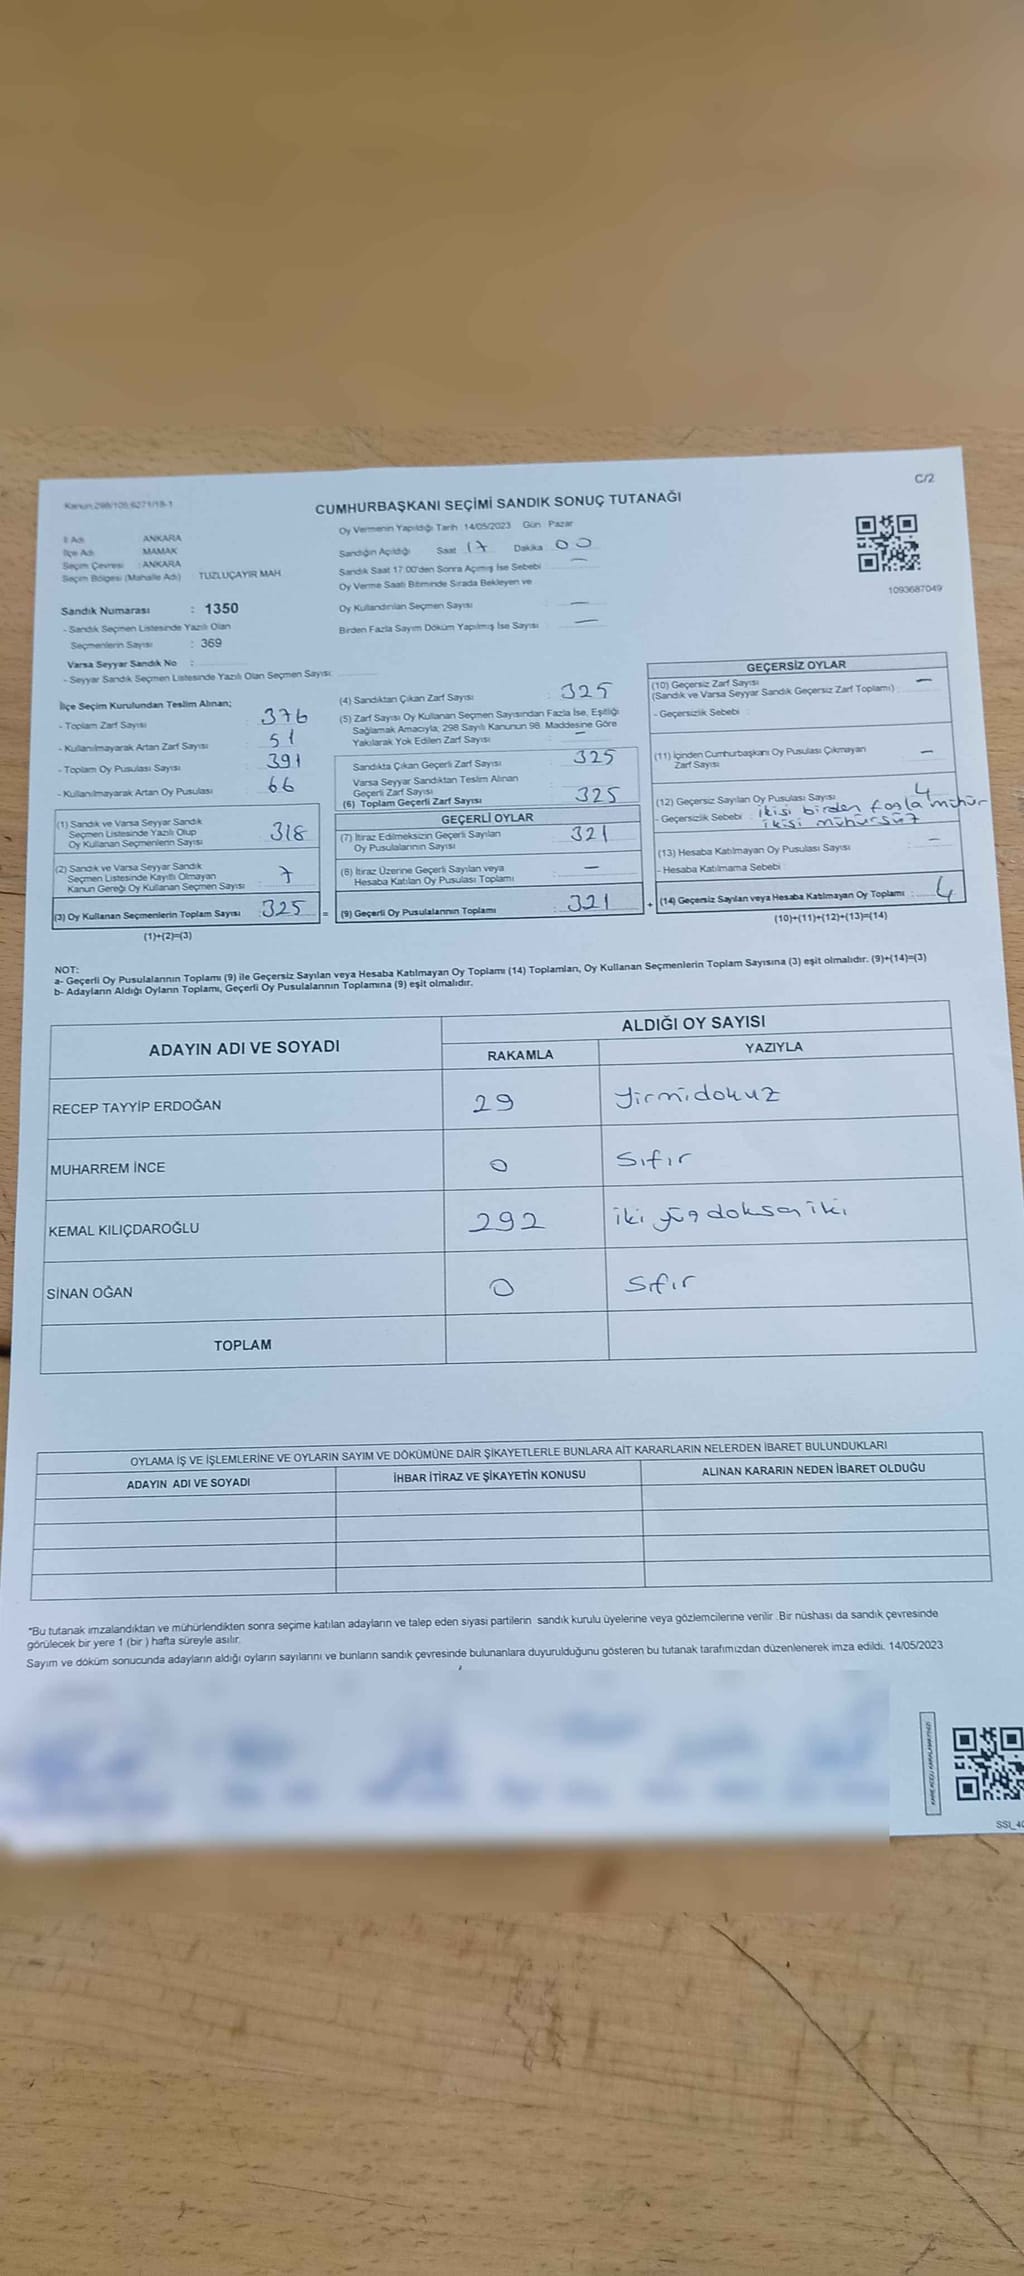 Kanun:298/105;6271/18-1
C/2
CUMHURBAŞKANI SEÇİMİ SANDIK SONUÇ TUTANAĞI
İl Adı : ANKARA
İlçe Adı : MAMAK
Seçim Çevresi : ANKARA
Seçim Bölgesi (Mahalle Adı) TUZLUÇAYIR MAH
Sandık Numarası : 1350
- Sandık Seçmen Listesinde Yazılı Olan
Seçmenlerin Sayısı : 369
Varsa Seyyar Sandık No :
- Seyyar Sandık Seçmen Listesinde Yazılı Olan Seçmen Sayısı:
Oy Vermenin Yapıldığı Tarih :14/05/2023 Gün : Pazar
Sandığın Açıldığı Saat 17 Dakika 00
Sandık Saat 17:00'den Sonra Açımış İse Sebebi : —
Oy Verme Saati Bitiminde Sırada Bekleyen ve
Oy Kullandırılan Seçmen Sayısı : —
Birden Fazla Sayım Döküm Yapılmış İse Sayısı : —
1093687049
İlçe Seçim Kurulundan Teslim Alınan;
- Toplam Zarf Sayısı : 376
- Kullanılmayarak Artan Zarf Sayısı : 51
- Toplam Oy Pusulası Sayısı : 391
- Kullanılmayarak Artan Oy Pusulası : 66
(1) Sandık ve Varsa Seyyar Sandık
Seçmen Listesinde Yazılı Olup
Oy Kullanan Seçmenlerin Sayısı : 318
(2) Sandık ve Varsa Seyyar Sandık
Seçmen Listesinde Kayıtlı Olmayan
Kanun Gereği Oy Kullanan Seçmen Sayısı : 7
(3) Oy Kullanan Seçmenlerin Toplam Sayısı : 325 =
(1)+(2)=(3)
(4) Sandıktan Çıkan Zarf Sayısı : 325
(5) Zarf Sayısı Oy Kullanan Seçmen Sayısından Fazla İse, Eşitliği
Sağlamak Amacıyla, 298 Sayılı Kanunun 98. Maddesine Göre
Yakılarak Yok Edilen Zarf Sayısı : —
Sandıkta Çıkan Geçerli Zarf Sayısı : 325
Varsa Seyyar Sandıktan Teslim Alınan
Geçerli Zarf Sayısı :
(6) Toplam Geçerli Zarf Sayısı : 325
GEÇERLİ OYLAR
(7) İtiraz Edilmeksizin Geçerli Sayılan
Oy Pusulalarının Sayısı : 321
(8) İtiraz Üzerine Geçerli Sayılan veya
Hesaba Katılan Oy Pusulası Toplamı : —
(9) Geçerli Oy Pusulalarının Toplamı : 321 +
GEÇERSİZ OYLAR
(10) Geçersiz Zarf Sayısı
(Sandık ve Varsa Seyyar Sandık Geçersiz Zarf Toplamı) : —
- Geçersizlik Sebebi :
(11) İçinden Cumhurbaşkanı Oy Pusulası Çıkmayan
Zarf Sayısı : —
(12) Geçersiz Sayılan Oy Pusulası Sayısı : 4
- Geçersizlik Sebebi : ikisi birden fazla mühür
ikisi mühürsüz
(13) Hesaba Katılmayan Oy Pusulası Sayısı : —
- Hesaba Katılmama Sebebi :
(14) Geçersiz Sayılan veya Hesaba Katılmayan Oy Toplamı : 4
(10)+(11)+(12)+(13)=(14)
NOT:
a- Geçerli Oy Pusulalarının Toplamı (9) ile Geçersiz Sayılan veya Hesaba Katılmayan Oy Toplamı (14) Toplamları, Oy Kullanan Seçmenlerin Toplam Sayısına (3) eşit olmalıdır. (9)+(14)=(3)
b- Adayların Aldığı Oyların Toplamı, Geçerli Oy Pusulalarının Toplamına (9) eşit olmalıdır.
ADAYIN ADI VE SOYADI ALDIĞI OY SAYISI
RAKAMLA YAZIYLA
RECEP TAYYİP ERDOĞAN 29 yirmidokuz
MUHARREM İNCE 0 Sıfır
KEMAL KILIÇDAROĞLU 292 iki yüz doksan iki
SİNAN OĞAN 0 Sıfır
TOPLAM
OYLAMA İŞ VE İŞLEMLERİNE VE OYLARIN SAYIM VE DÖKÜMÜNE DAİR ŞİKAYETLERLE BUNLARA AİT KARARLARIN NELERDEN İBARET BULUNDUKLARI
ADAYIN ADI VE SOYADI İHBAR İTİRAZ VE ŞİKAYETİN KONUSU ALINAN KARARIN NEDEN İBARET OLDUĞU
*Bu tutanak imzalandıktan ve mühürlendikten sonra seçime katılan adayların ve talep eden siyasi partilerin sandık kurulu üyelerine veya gözlemcilerine verilir .Bir nüshası da sandık çevresinde
görülecek bir yere 1 (bir ) hafta süreyle asılır.
Sayım ve döküm sonucunda adayların aldığı oyların sayılarını ve bunların sandık çevresinde bulunanlara duyurulduğunu gösteren bu tutanak tarafımızdan düzenlenerek imza edildi. 14/05/2023